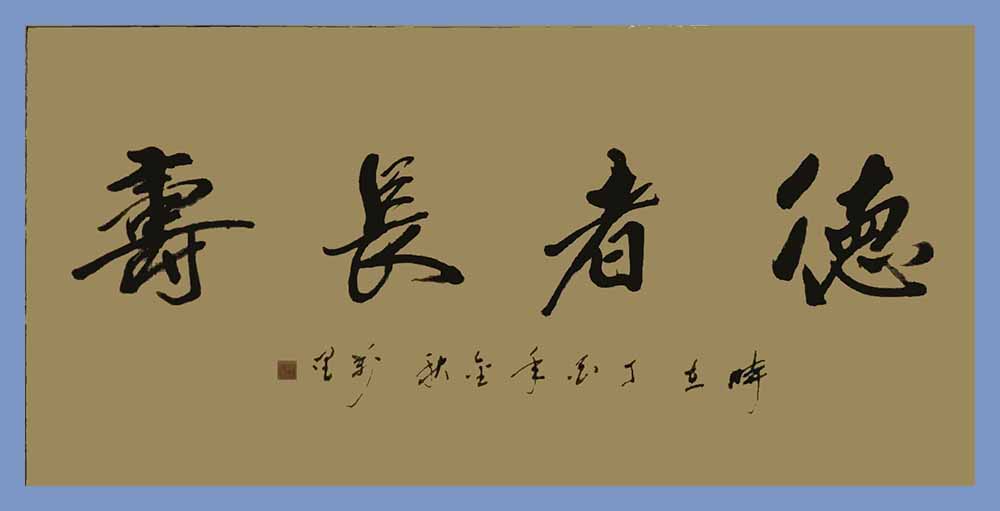 德者長壽
時在丁酉年金秋 萬里